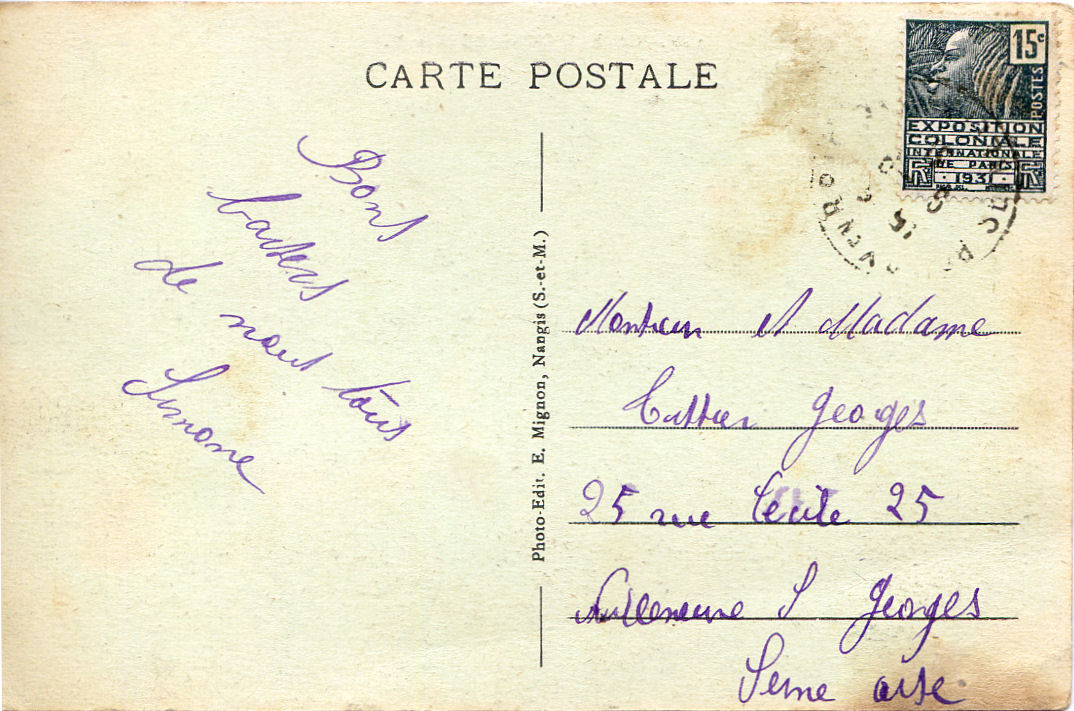 CARTE POSTALE
15c
POSTES
EXPOSITION
COLONIALE
INTERNATIONALE
DE PARIS
1931
Bons
baisers
de nous tous
Simone
Photo-Edit. E. Mignon, Nangis (S.-et-M.)
Monsieur et Madame
Georges
25 rue Cecile 25
Villeneuve S Georges
Seine oise